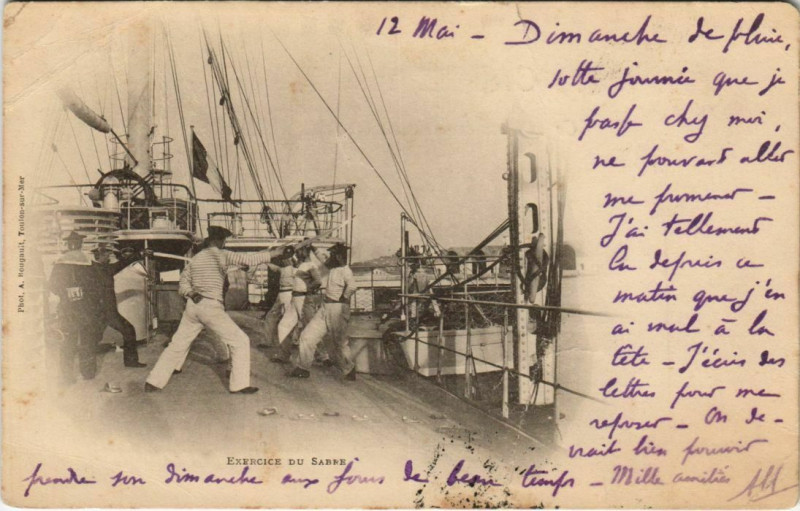 12 Mai - Dimanche de pluie,
sotte journée que je
passe chez moi,
ne pouvant aller
me promener -
J'ai tellement
lu depuis ce
matin que j'en
ai mal à la
tête - J'écris des
lettres pour me
reposer - On de-
vrait bien pouvoir
prendre son dimanche aux jours de beau temps - Mille amitiés
Phot. A. Bougault, Toulon-sur-Mer
EXERCICE DU SABRE